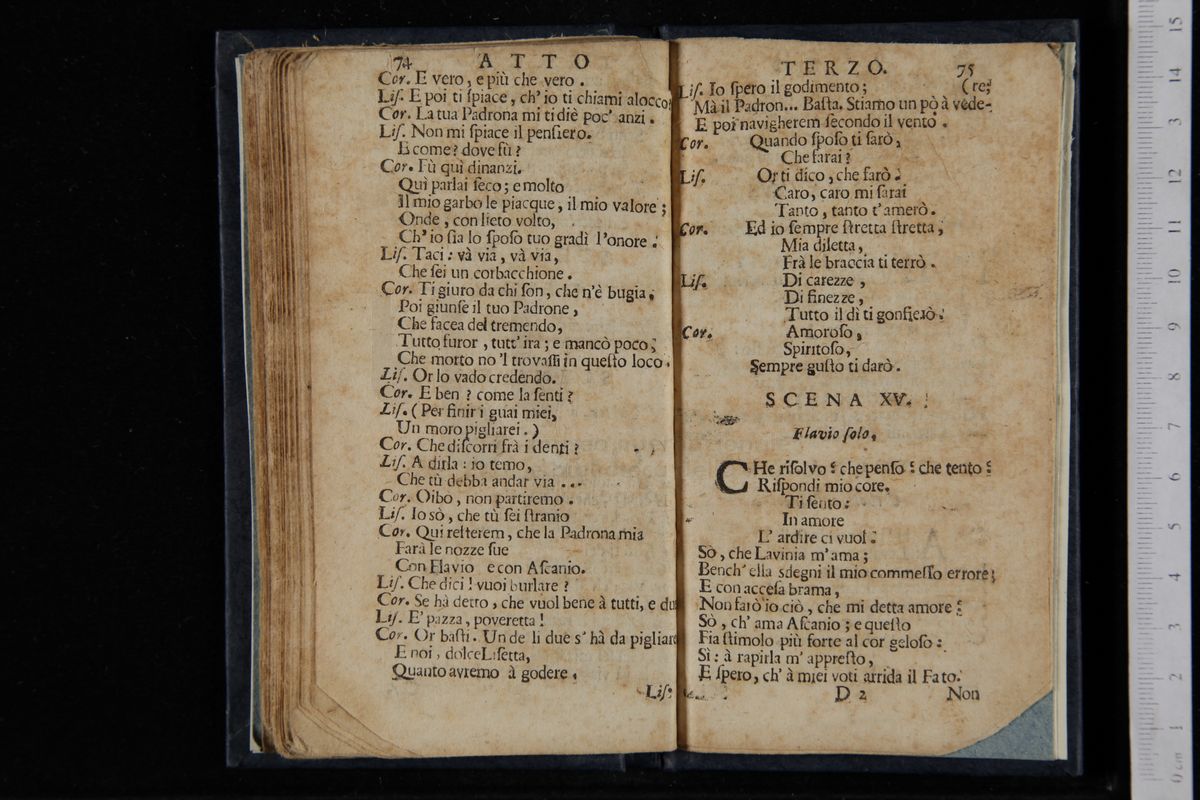 74 ATTO
Cor. E vero, e più che vero.
Liſ. E poi ti ſpiace, ch' io ti chiami alocco?
Cor. La tua Padrona mi ti diè poc' anzi.
Liſ. Non mi ſpiace il penſiero.
E come? dove fù?
Cor. Fù quì dinanzi.
Quì parlai ſeco; e molto
Il mio garbo le piacque, il mio valore;
Onde, con lieto volto,
Ch' io ſia lo ſpoſo tuo gradì l'onore.
Liſ. Taci: và via, và via,
Che ſei un corbacchione.
Cor. Ti giuro da chi ſon, che n'è bugia.
Poi giunſe il tuo Padrone,
Che facea del tremendo,
Tutto furor, tutt' ira; e mancò poco,
Che morto no 'l trovaſſi in queſto loco.
Liſ. Or lo vado credendo.
Cor. E ben? come la ſenti?
Liſ. (Per finir i guai miei,
Un moro pigliarei.)
Cor. Che diſcorri frà i denti?
Liſ. A dirla: io temo,
Che tù debba andar via ...
Cor. Oibo, non partiremo.
Liſ. Io sò, che tù ſei ſtranio
Cor. Qui reſterem, che la Padrona mia
Farà le nozze ſue
Con Flavio e con Aſcanio.
Liſ. Che dici! vuoi burlare?
Cor. Se hà detto, che vuol bene à tutti, e du
Liſ. E' pazza, poveretta!
Cor. Or baſti. Un de li due s' hà da pigliare
E noi, dolce Liſetta,
Quanto avremo à godere.
Liſ.
TERZO. 75
Liſ. Io ſpero il godimento; (re;
Mà il Padron... Baſta. Stiamo un pò à vede-
E poi navigherem ſecondo il vento.
Cor. Quando ſpoſo ti ſarò,
Che farai?
Liſ. Or ti dico, che farò.
Caro, caro mi ſarai
Tanto, tanto t'amerò.
Cor. Ed io ſempre ſtretta ſtretta,
Mia diletta,
Frà le braccia ti terrò.
Liſ. Di carezze,
Di finezze,
Tutto il dì ti gonfierò.
Cor. Amoroſo,
Spiritoſo,
Sempre guſto ti darò.
SCENA XV.
Flavio ſolo.
CHe riſolvo? che penſo? che tento?
Riſpondi mio core.
Ti ſento:
In amore
L' ardire ci vuol.
Sò, che Lavinia m' ama;
Bench' ella sdegni il mio commeſſo errore;
E con acceſa brama,
Non farò io ciò, che mi detta amore?
Sò, ch' ama Aſcanio; e queſto
Fia ſtimolo più forte al cor geloſo:
Sì: à rapirla m' appreſto,
E ſpero, ch' à miei voti arrida il Fato.
D 2 Non